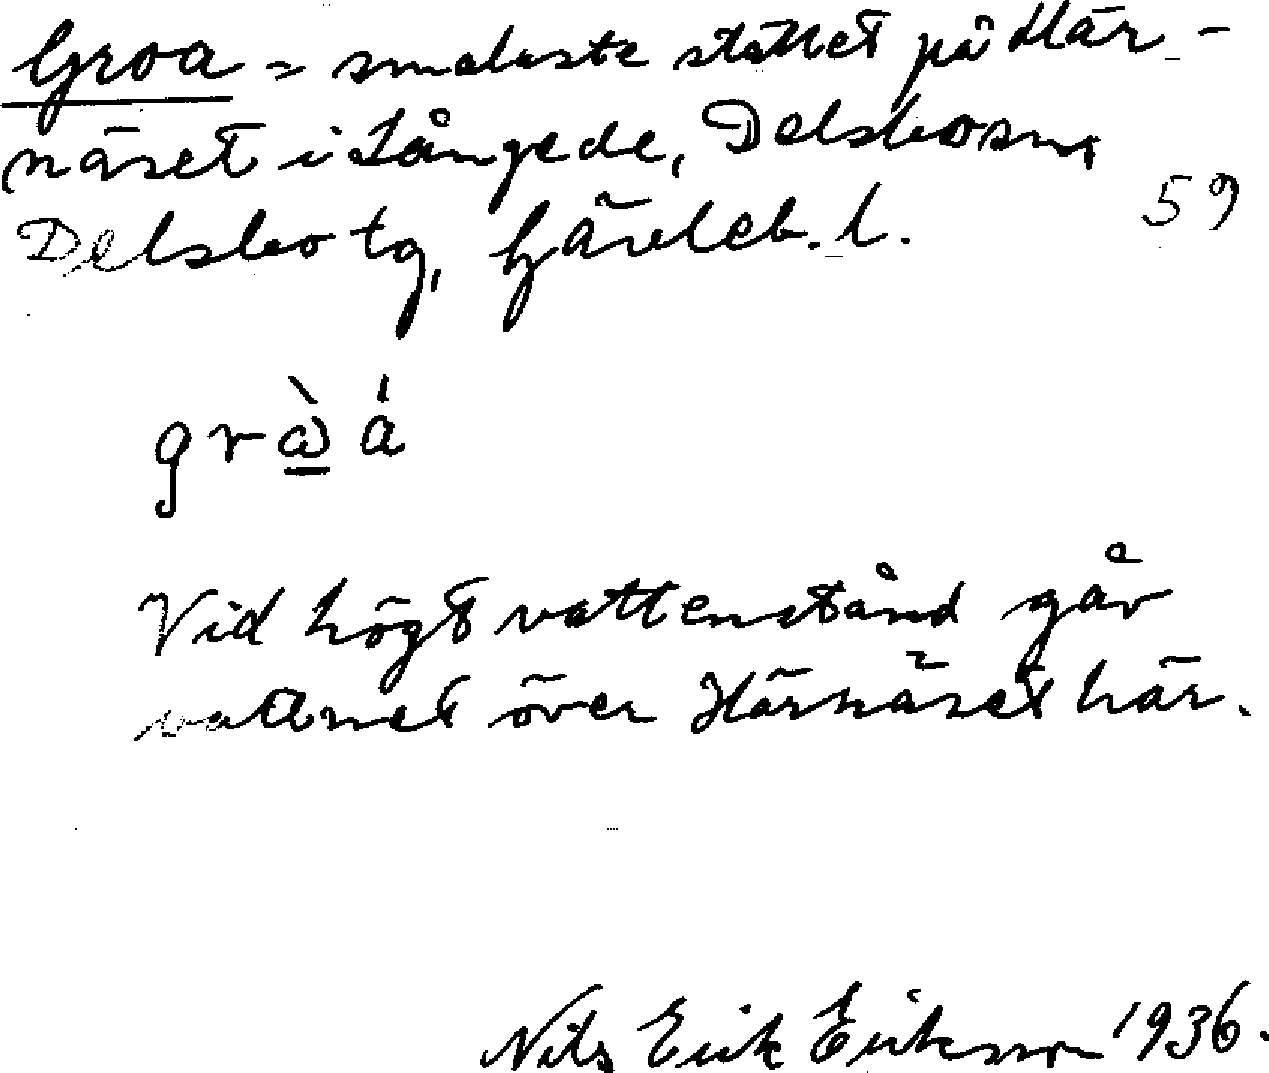 Groa = smalaste stället på Här-
näset i Långede, Delsbo sn,
Delsbo tg, Gävleb. l. 59
grà̲ á
Vid högt vattenstånd går
vattnet över Härnäset här.
Nils Erik Eriksson 1936.